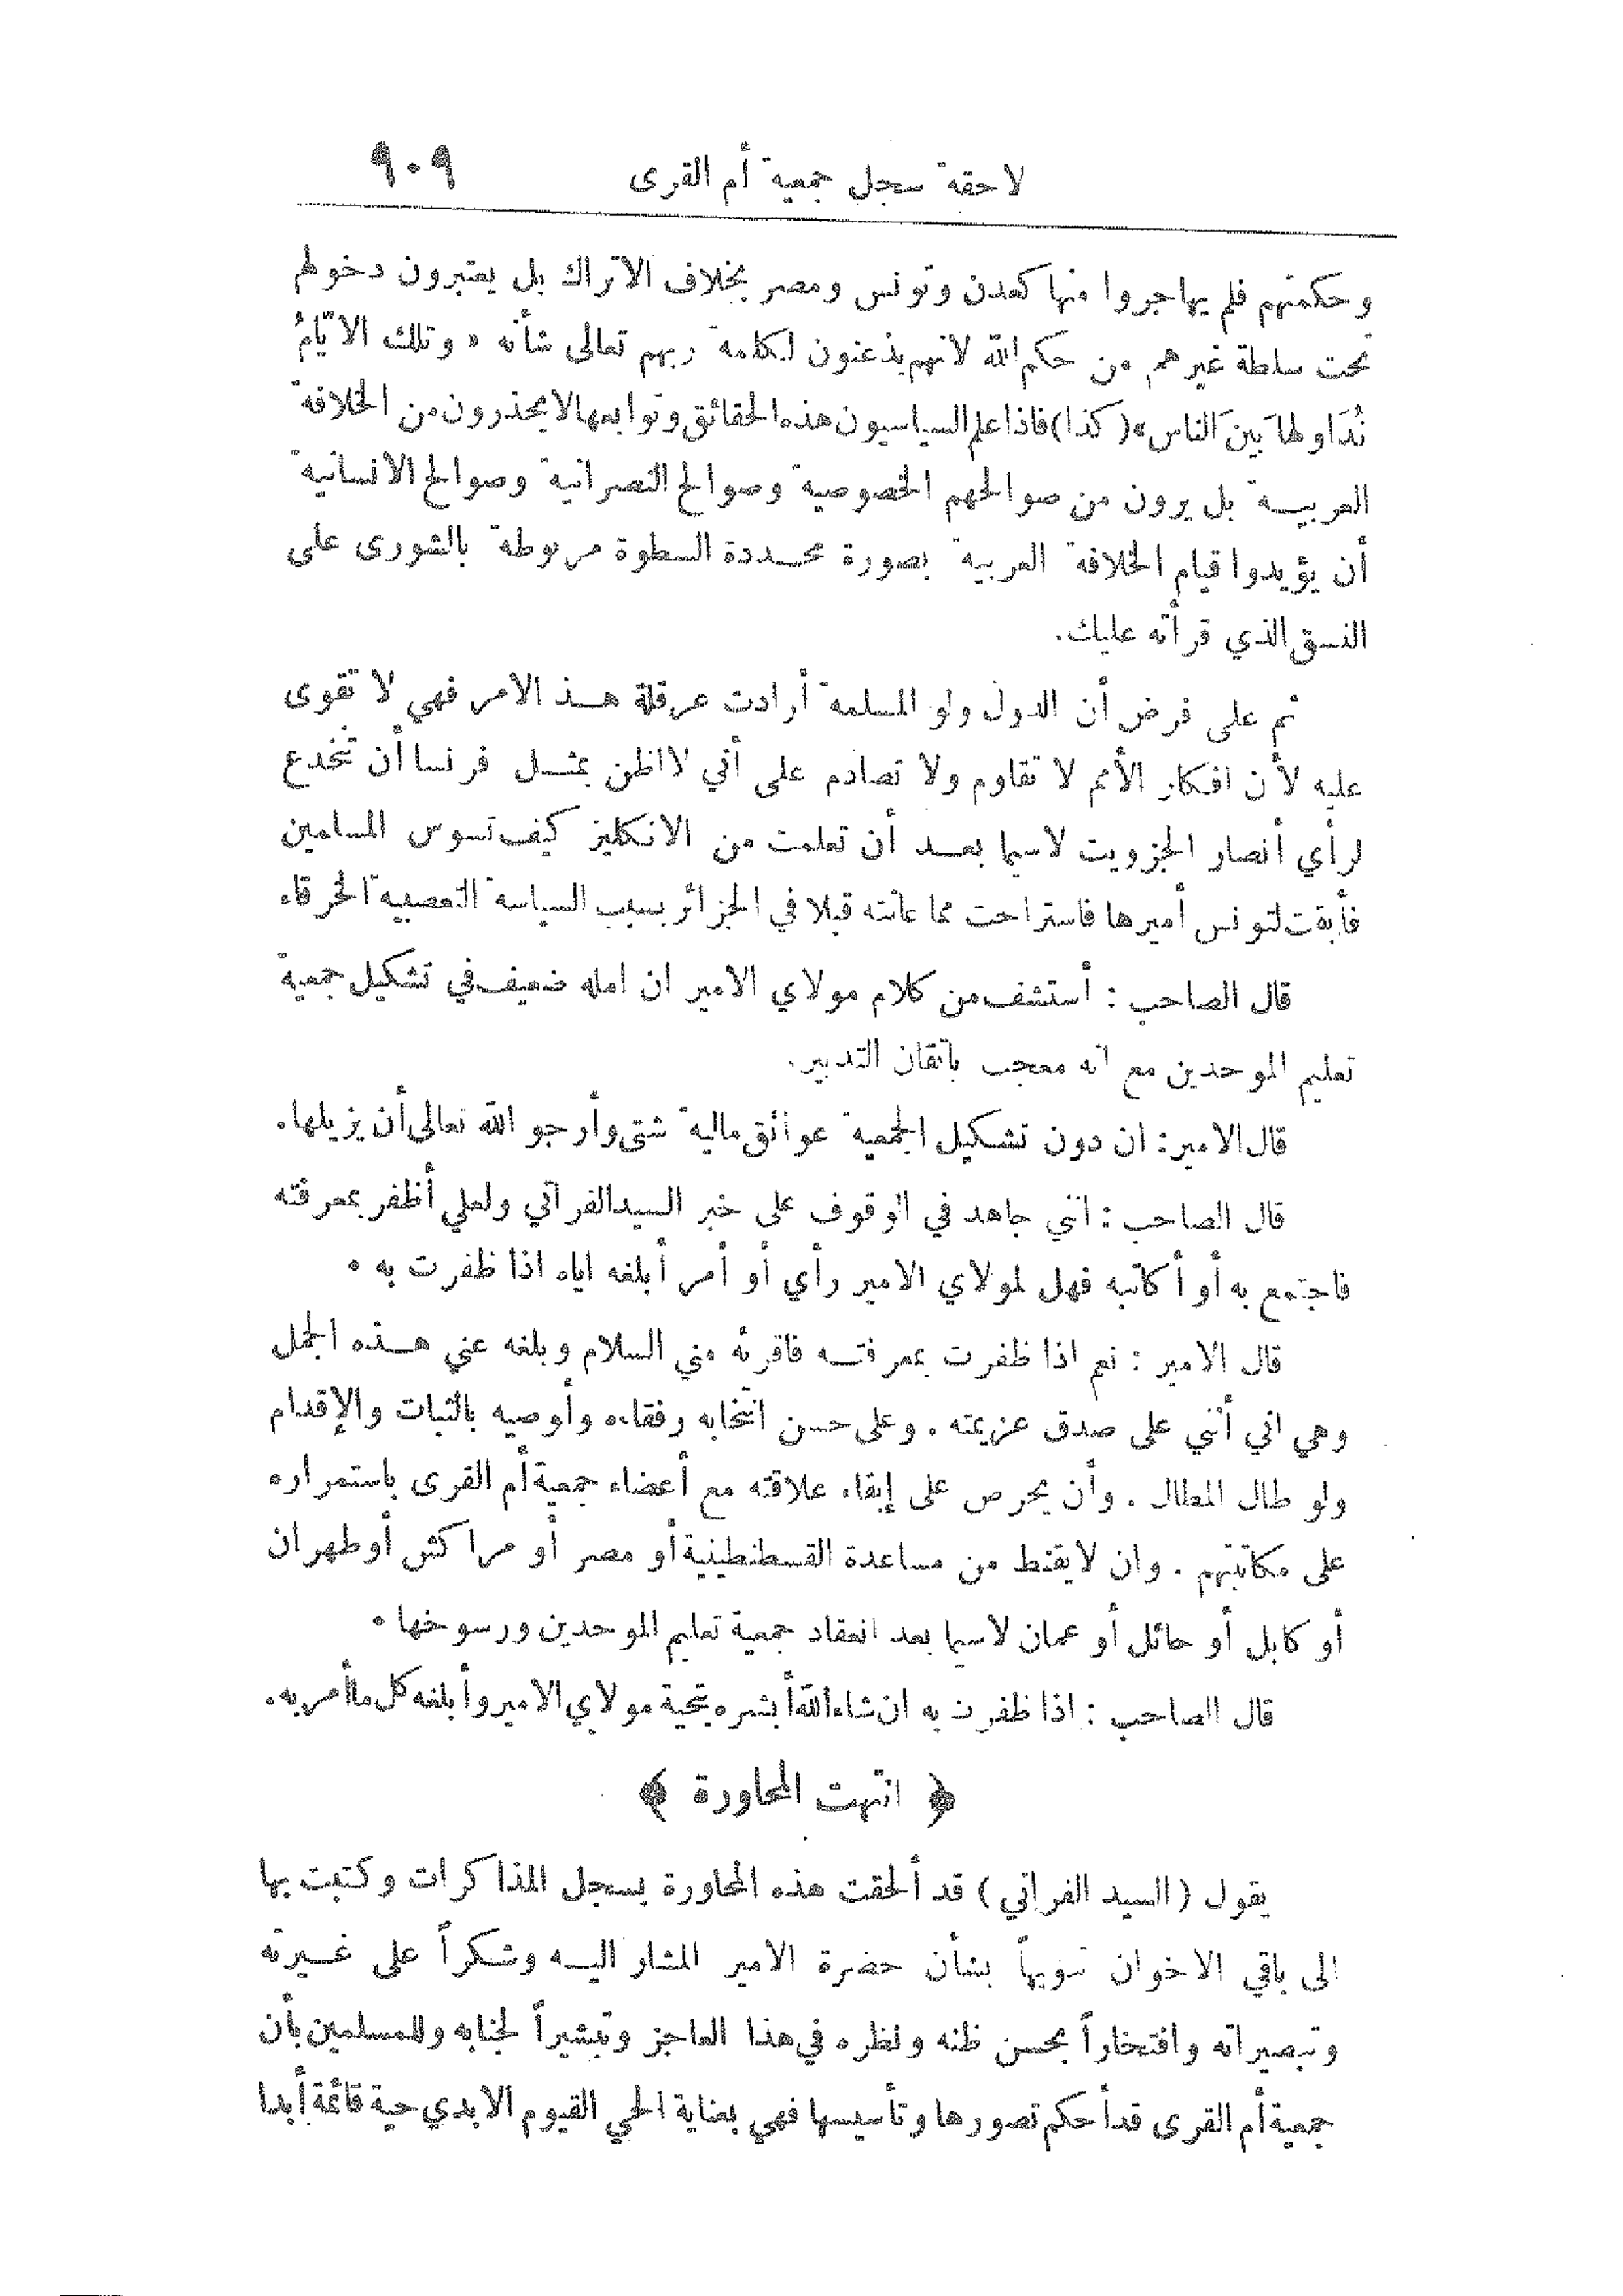 لاحقة سجل جمعية أم القرى ٩٠٩
وحكمتهم فلم يهاجروا منها كعدن وتونس ومصر بخلاف الاتراك بل يعتبرون دخولهم
تحت سلطة غيرهم من حكم الله لانهم يذعنون لكلمة ربهم تعالى شأنه « وتلك الايّامُ
نُدَاولها بينَ الناس» ( كذا ) فاذا علم السياسيون هذه الحقائق وتوابعها لا يحذرون من الخلافة
العربيـة بل يرون من صوالحهم الخصوصية وصوالح النصرانية وصوالح الانسانية
أن يؤيدوا قيام الخلافة العربية بصورة محـددة السطوة مربوطة بالشورى على
النسق الذي قرأته عليك.
ثم على فرض أن الدول ولو المسلمة أرادت عرقلة هـذ الامر فهي لا تقوى
عليه لأن افكار الأمم لا تقاوم ولا تصادم على أني لا اظن بمثـل فرنسا أن تخدع
لرأي أنصار الجزويت لاسيما بعـد أن تعلمت من الانكليز كيف تسوس المسلمين
فأبقت لتونس أميرها فاستراحت مما عانته قبلا في الجزائر بسبب السياسة التعصبية الخرقاء
قال الصاحب : أستشف من كلام مولاي الامير ان امله ضعيف في تشكيل جمعية
تعليم الموحدين مع انه معجب باتقان التدبير.
قال الامير: ان دون تشكيل الجمعية عوائق مالية شتى وأرجو الله تعالى أن يزيلها.
قال الصاحب : انني جاهد في الوقوف على خبر السيد الفراتي ولعلي أظفر بمعرفته
فاجتمع به أو أكاتبه فهل لمولاي الامير رأي أو أمر أبلغه اياه اذا ظفرت به .
قال الامير : نعم اذا ظفرت بمعرفتـه فاقرئه مني السلام وبلغه عني هـذه الجمل
وهي اني أثني على صدق عزيمته . وعلى حسن انتخابه رفقاءه وأوصيه بالثبات والإقدام
ولو طال المطال . وأن يحرص على إبقاء علاقته مع أعضاء جمعية أم القرى باستمراره
على مكاتبتهم . وان لا يقنط من مساعدة القسطنطينية أو مصر أو مراكش أو طهران
أو كابل أو حائل أو عمان لاسيما بعد انعقاد جمعية تعليم الموحدين ورسوخها .
قال الصاحب : اذا ظفرت به ان شاء الله أبشره بتحية مولاي الامير وأبلغه كل ما أمر به.
﴿ انتهت المحاورة ﴾
يقول ( السيد الفراتي ) قد ألحقت هذه المحاورة بسجل المذاكرات وكتبت بها
الى باقي الاخوان تنويهاً بشأن حضرة الامير المشار اليـه وشكراً على غـيرته
وتبصيراته وافتخاراً بحسن ظنه ونظره في هذا العاجز وتبشيراً لجنابه وللمسلمين بأن
جمعية أم القرى قد أحكم تصورها وتأسيسها فهي بعناية الحي القيوم الابدي حية قائمة أبدا